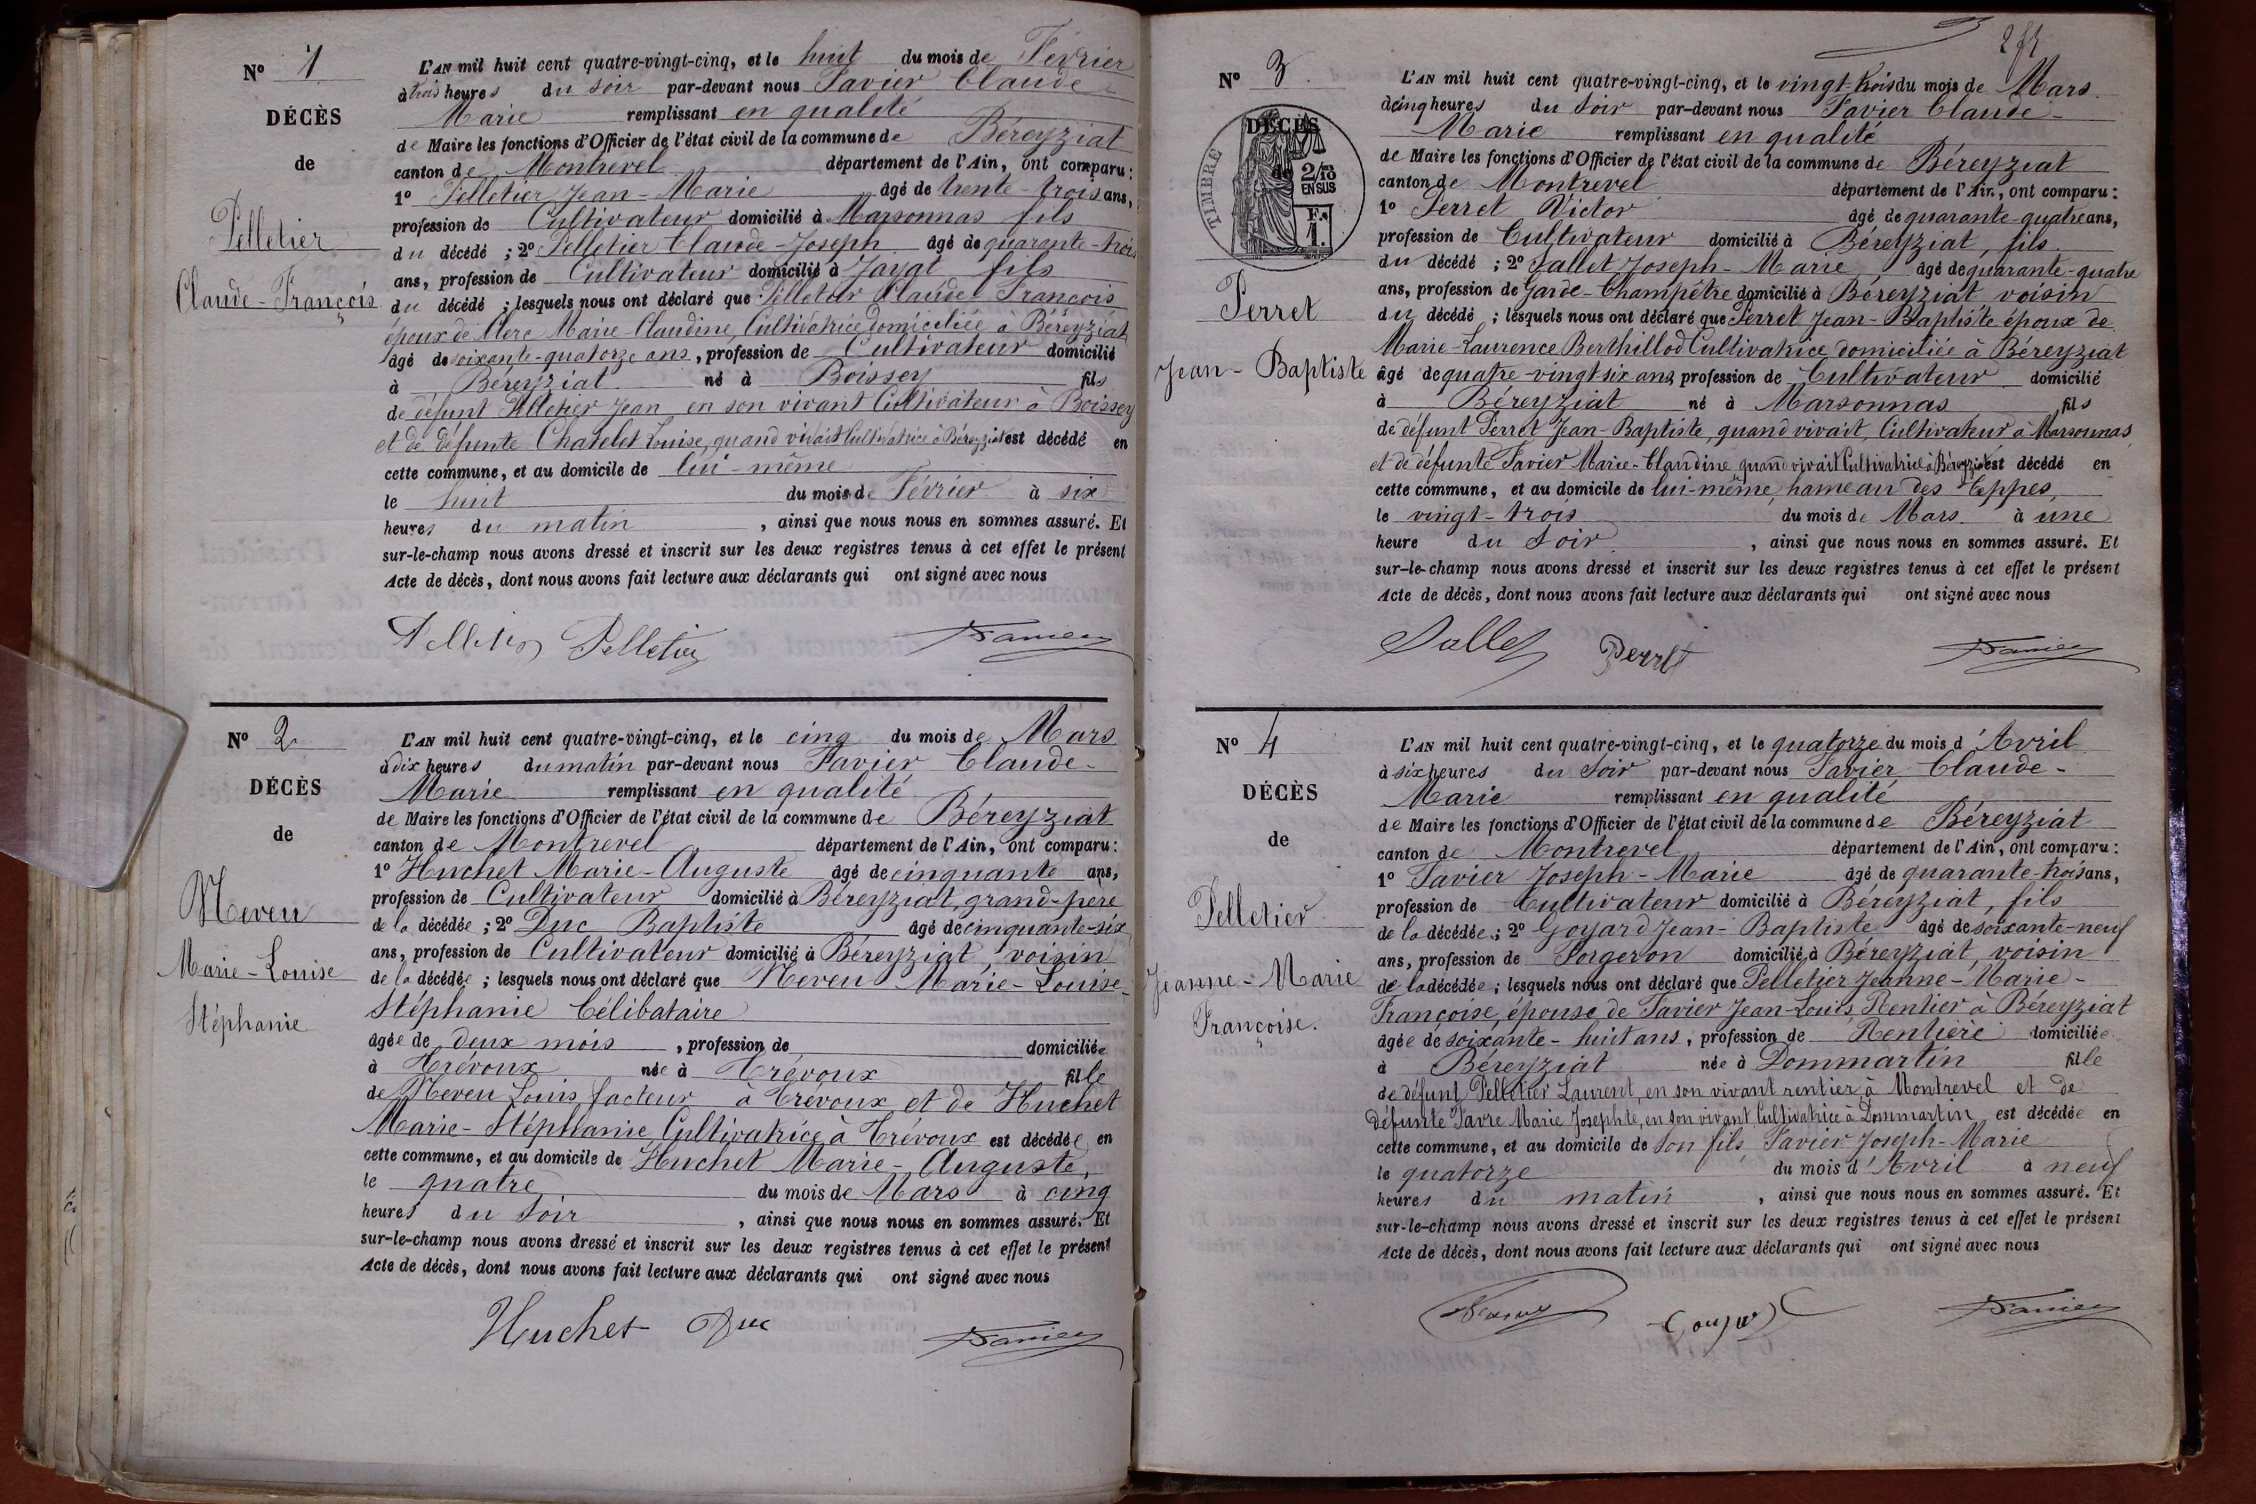 N° 1
DÉCÈS
de
Pelletier
Claude-François
L'AN mil huit cent quatre-vingt-cinq, et le huit du mois de Février
à trois heures du soir par-devant nous Favier Claude-
Marie remplissant en qualité
de Maire les fonctions d'Officier de l'état civil de la commune de Béreyziat
canton de Montrevel département de l'Ain, ont comparu :
1° Pelletier Jean-Marie âgé de trente-trois ans,
profession de Cultivateur domicilié à Marsonnas fils
du décédé ; 2° Pelletier Claude-Joseph âgé de quarante-trois
ans, profession de Cultivateur domicilié à Jayat fils
du décédé ; lesquels nous ont déclaré que Pelletier Claude François
époux de Clerc Marie-Claudine, Cultivatrice domiciliée à Béreyziat
âgé de soixante-quatorze ans, profession de Cultivateur domicilié
à Béreyziat né à Boissey fils
de défunt Pelletier Jean, en son vivant Cultivateur à Boissey
et de défunte Chatelet Louise, quand vivait Cultivatrice à Béreyziat est décédé en
cette commune, et au domicile de lui-même
le huit du mois de Février à six
heures du matin, ainsi que nous nous en sommes assuré. Et
sur-le-champ nous avons dressé et inscrit sur les deux registres tenus à cet effet le présent
Acte de décès, dont nous avons fait lecture aux déclarants qui ont signé avec nous
Pelletier Pelletier Favier
N° 2
DÉCÈS
de
Neveu
Marie-Louise
Stéphanie
L'AN mil huit cent quatre-vingt-cinq, et le cinq du mois de Mars
à dix heures du matin par-devant nous Favier Claude-
Marie remplissant en qualité
de Maire les fonctions d'Officier de l'état civil de la commune de Béreyziat
canton de Montrevel département de l'Ain, ont comparu :
1° Huchet Marie-Auguste âgé de cinquante ans,
profession de Cultivateur domicilié à Béreyziat, grand-père
de la décédée ; 2° Duc Baptiste âgé de cinquante-six
ans, profession de Cultivateur domicilié à Béreyziat, voisin
de la décédée ; lesquels nous ont déclaré que Neveu Marie-Louise-
Stéphanie Célibataire
âgée de deux mois, profession de domiciliée
à Trévoux née à Trévoux fille
de Neveu Louis, facteur à Trévoux et de Huchet
Marie-Stéphanie, Cultivatrice à Trévoux est décédée en
cette commune, et au domicile de Huchet Marie-Auguste,
le quatre du mois de Mars à cinq
heures du soir, ainsi que nous nous en sommes assuré. Et
sur-le-champ nous avons dressé et inscrit sur les deux registres tenus à cet effet le présent
Acte de décès, dont nous avons fait lecture aux déclarants qui ont signé avec nous
Huchet Duc Favier
N° 3
DÉCÈS
de
TIMBRE
2/10 EN SUS
F. 1.
Perret
Jean-Baptiste
L'AN mil huit cent quatre-vingt-cinq, et le vingt trois du mois de Mars
à cinq heures du soir par-devant nous Favier Claude-
Marie remplissant en qualité
de Maire les fonctions d'Officier de l'état civil de la commune de Béreyziat
canton de Montrevel département de l'Ain, ont comparu :
1° Perret Victor âgé de quarante-quatre ans,
profession de Cultivateur domicilié à Béreyziat, fils
du décédé ; 2° Sallet Joseph-Marie, âgé de quarante-quatre
ans, profession de Garde-Champêtre domicilié à Béreyziat voisin
du décédé ; lesquels nous ont déclaré que Perret Jean-Baptiste époux de
Marie-Laurence Berthillod Cultivatrice domiciliée à Béreyziat
âgé de quatre-vingt six ans, profession de Cultivateur domicilié
à Béreyziat né à Marsonnas fils
de défunt Perret Jean-Baptiste, quand vivait, Cultivateur à Marsonnas
et de défunte Favier Marie-Claudine quand vivait Cultivatrice à Béreyziat est décédé en
cette commune, et au domicile de lui-même, hameau des Teppes,
le vingt-trois du mois de Mars à une
heure du soir, ainsi que nous nous en sommes assuré. Et
sur-le-champ nous avons dressé et inscrit sur les deux registres tenus à cet effet le présent
Acte de décès, dont nous avons fait lecture aux déclarants qui ont signé avec nous
Sallet Perret Favier
N° 4
DÉCÈS
de
Pelletier
Jeanne-Marie
Françoise.
L'AN mil huit cent quatre-vingt-cinq, et le quatorze du mois d'Avril
à six heures du soir par-devant nous Favier Claude-
Marie remplissant en qualité
de Maire les fonctions d'Officier de l'état civil de la commune de Béreyziat
canton de Montrevel département de l'Ain, ont comparu :
1° Favier Joseph-Marie âgé de quarante-trois ans,
profession de Cultivateur domicilié à Béreyziat, fils
de la décédée ; 2° Goyard Jean-Baptiste âgé de soixante-neuf
ans, profession de Forgeron domicilié à Béreyziat, voisin
de la décédée ; lesquels nous ont déclaré que Pelletier Jeanne-Marie-
Françoise, épouse de Favier Jean-Louis, Rentier à Béreyziat
âgée de soixante-huit ans, profession de Rentière domiciliée
à Béreyziat née à Dommartin fille
de défunt Pelletier Laurent, en son vivant rentier à Montrevel et de
défunte Favre Marie Josephte, en son vivant Cultivatrice à Dommartin est décédée en
cette commune, et au domicile de son fils Favier Joseph-Marie
le quatorze du mois d'Avril à neuf
heures du matin, ainsi que nous nous en sommes assuré. Et
sur-le-champ nous avons dressé et inscrit sur les deux registres tenus à cet effet le présent
Acte de décès, dont nous avons fait lecture aux déclarants qui ont signé avec nous
Favier Goyard Favier